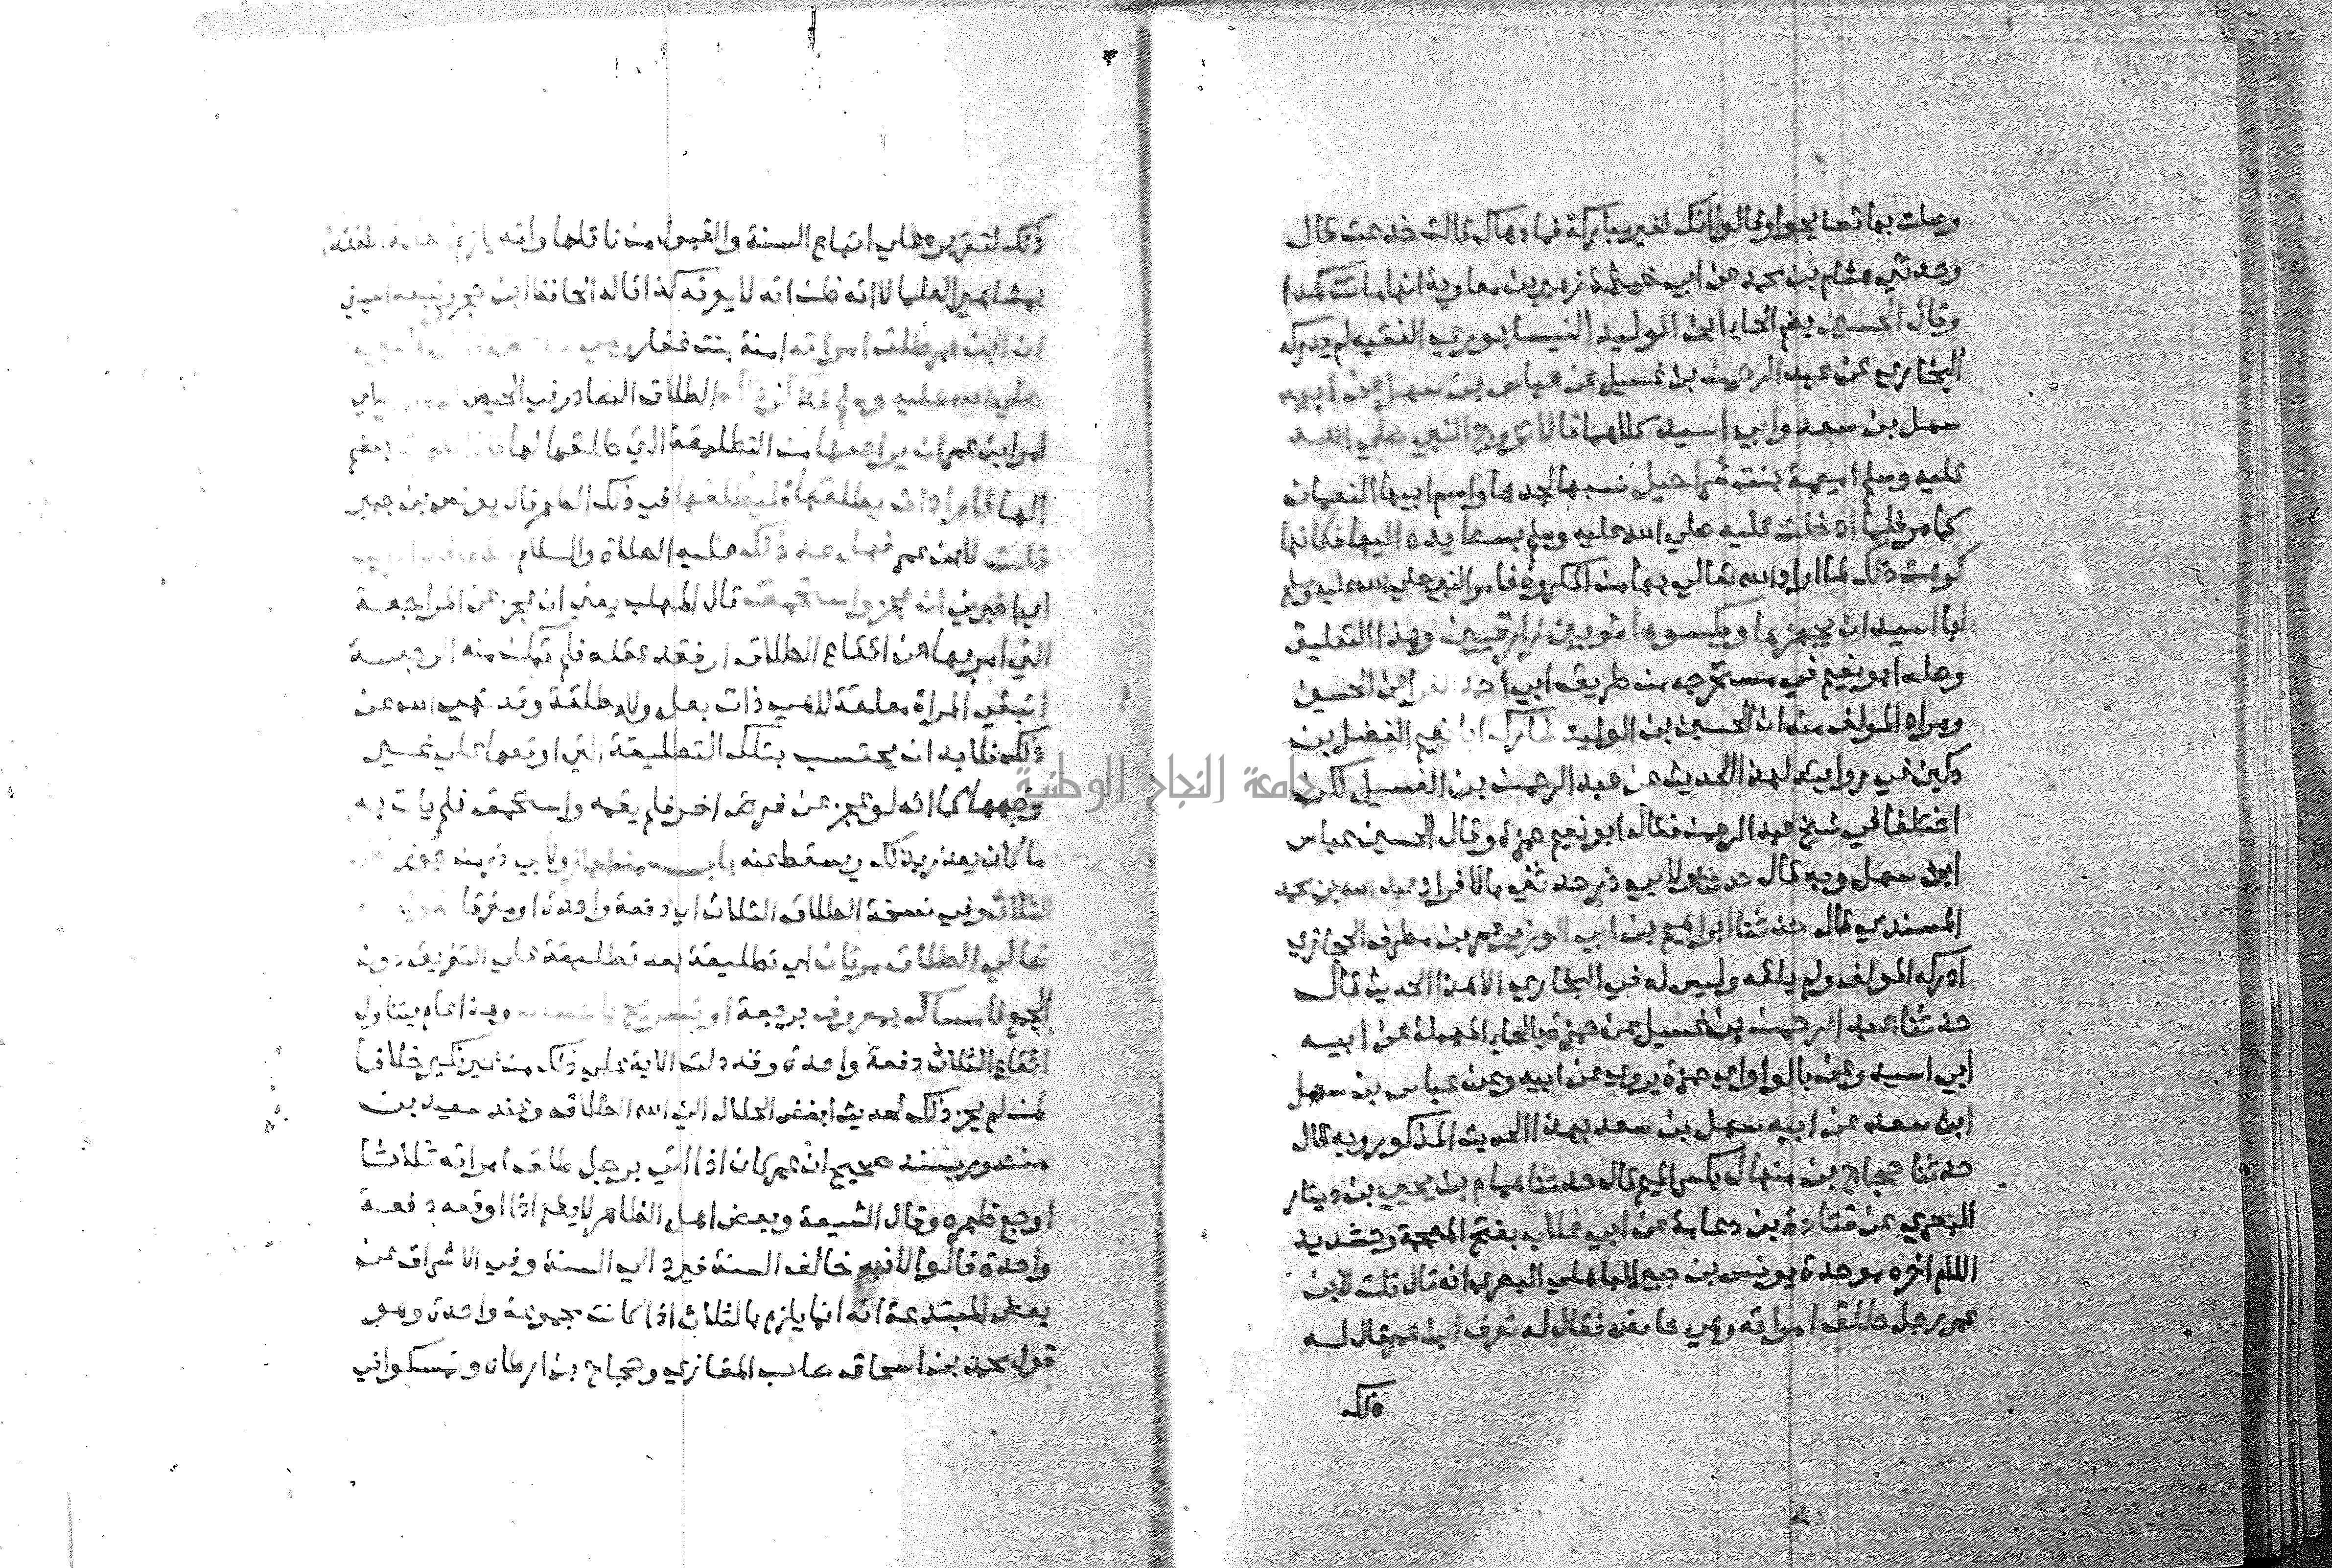 وصلت بها تصايحوا وقالوا انك لغير مباركة فما دهاك قالت خدعت قال
وحدثني هشام بن محمد عن ابي خيثمة زهير بن معاوية انها ماتت كمدا
وقال الحسين بضم الحاء ابن الوليد النيسابوري الفقيه لم يدركه
البخاري عن عبد الرحمن بن غسيل عن عباس بن سهل عن ابيه
سهل بن سعد وابي اسيد كلاهما قالا تزوج النبي صلي الله
عليه وسلم اميمة بنت شراحيل نسبها لجدها واسم ابيها النعمان
كما مر فلما ادخلت عليه صلي الله عليه وسلم بسط يده اليها فكانها
كرهت ذلك لما اراد الله تعالي بها من المكروه فامر النبي صلي الله عليه وسلم
ابا اسيد ان يجهزها ويكسوها ثوبين رازقيين وهذا التعليق
وصله ابو نعيم في مستخرجه من طريق ابي احمد الفرا عن الحسين
ومراد المولف منه ان الحسين بن الوليد شارك ابا نعيم الفضل بن
دكين في روايته لهذا الحديث عن عبد الرحمن بن الغسيل لكن
اختلفا في شيخ عبد الرحمن فقال ابو نعيم حمزة وقال الحسين عباس
ابن سهل وبه قال حدثنا ولابي ذر حدثني بالافراد عبد الله بن محمد
المسندي قال حدثنا ابراهيم بن ابي الوزير عمر بن مطرف الحجازي
ادركه المولف ولم يلقه وليس له في البخاري الا هذا الحديث قال
حدثنا عبد الرحمن بن غسيل عن حمزة بالحاء المهملة عن ابيه
ابي اسيد وعن بالواو اي حمزة يروي عن ابيه وعن عباس بن سهل
ابن سعد عن ابيه سهل بن سعد بهذا الحديث المذكور وبه قال
حدثنا حجاج بن منهال بكسر الميم قال حدثنا همام بن يحيي بن دينار
البصري عن قتادة بن دعامة عن ابي غلاب بفتح المعجمة وتشديد
اللام اخره موحدة يونس بن جبير الباهلي البصري انه قال قلت لابن
عمر رجل طلق امراته وهي حائض فقال له تعرف ابن عمر قال له
ذلك
ذلك لتقريره علي اتباع السنة والقبول من ناقلها وانه يلزم العامة
بمشاهير العلما لا انه ظن انه لا يعرفه كذا قاله الحافظ ابن حجر وتبعه العيني
ان ابن عمر طلق امراته امنة بنت غفار وهي
صلي الله عليه وسلم الطلاق الصادر في الحيض
امر ابن عمر ان يراجعها من التطليقة التي طلقها بضم
الهاء فاراد ان يطلقها فليطلقها في ذلك الطهر قال يونس بن جبير
قلت لابن عمر فهل عد ذلك عليه الصلاة والسلام
اي اخبرني ان عجز واستحمق قال المهلب يعني ان عجز عن المراجعة
التي امر بها عن ايقاع الطلاق او فقد عقله فلم تمكن منه الرجعة
اتبقي المراة معلقة لا هي ذات بعل ولا مطلقة وقد نهي الله عن
ذلك فلا بد ان يحتسب بتلك التطليقة التي اوقعها علي غير
وجهها كما انه لو عجز عن فرض اخر فلم يقمه واستحمق فلم يات به
ما كان يعذر بذلك ويسقط عنه باب من اجاز ولابي ذر من جوز
الثلاث وفي نسخة الطلاق الثلاث اي دفعة واحدة او متفرقا
تعالي الطلاق مرتان اي تطليقة بعد تطليقة علي التفريق دون
الجمع فامساك بمعروف برجعة او تسريح باحسان وهذا عام يتناول
ايقاع الثلاث دفعة واحدة وقد دلت الاية علي ذلك من غير نكير خلافا
لمن لم يجز ذلك لحديث ابغض الحلال الي الله الطلاق وعند سعيد بن
منصور بسند صحيح ان عمر كان اذا اتي برجل طلق امراته ثلاثا
اوجع ظهره وقال الشيعة وبعض اهل الظاهر لا يقع اذا اوقعه دفعة
واحدة قالوا لانه خالف السنة فيرد الي السنة وفي الاشراف عن
بعض المبتدعة انه انما يلزم بالثلاث اذا كانت مجموعة واحدة وهو
قول محمد بن اسحاق صاحب المغازي وحجاج بن ارطاة وتمسكوا في
جامعة النجاح الوطنية